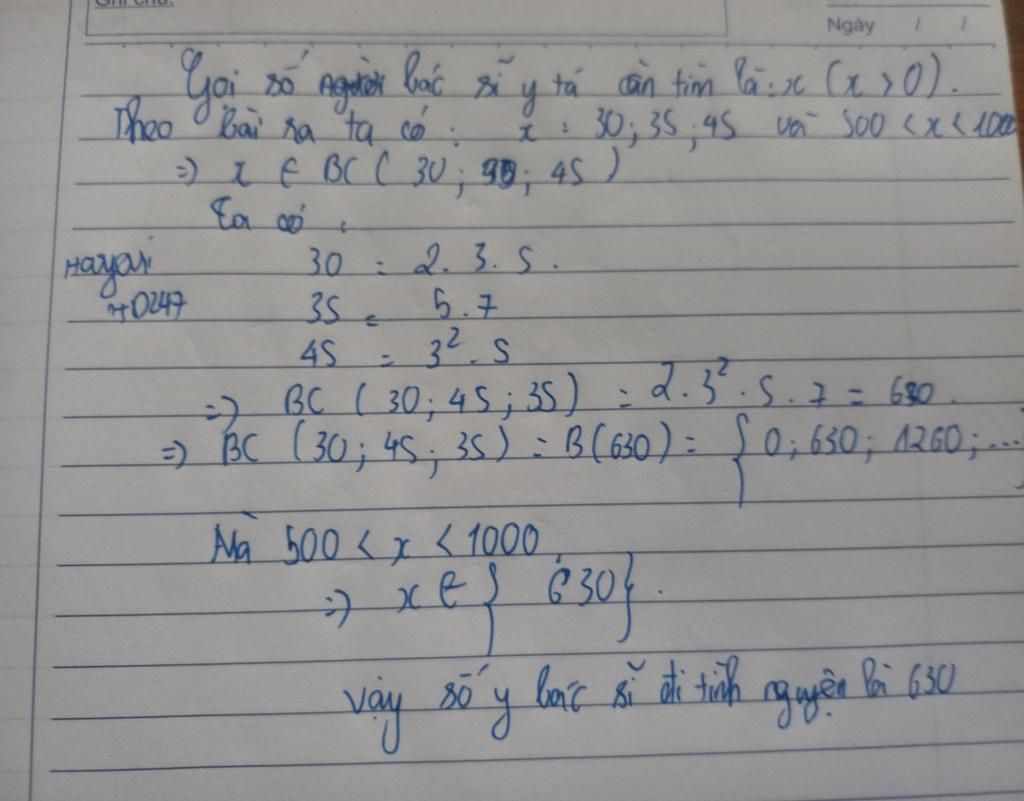 Ghi chú:
Ngày / /
Gọi số người bác sĩ y tá cần tìm là: x (x > 0).
Theo bài ra ta có: x : 30; 35; 45 và 500 < x < 1000
=> x ∈ BC( 30 ; ; 45 )
Ta có :
Hayari 30 = 2. 3. 5.
r+0247 35 = 5.7
45 = 3². 5
=> BC ( 30; 45; 35) = 2. 3². 5. 7 = 630.
=> BC (30; 45; 35) = B(630) = { 0; 630; 1260; ...}
Mà 500 < x < 1000,
=> x ∈ { 630}.
Vậy số y bác sĩ đi tình nguyện là 630